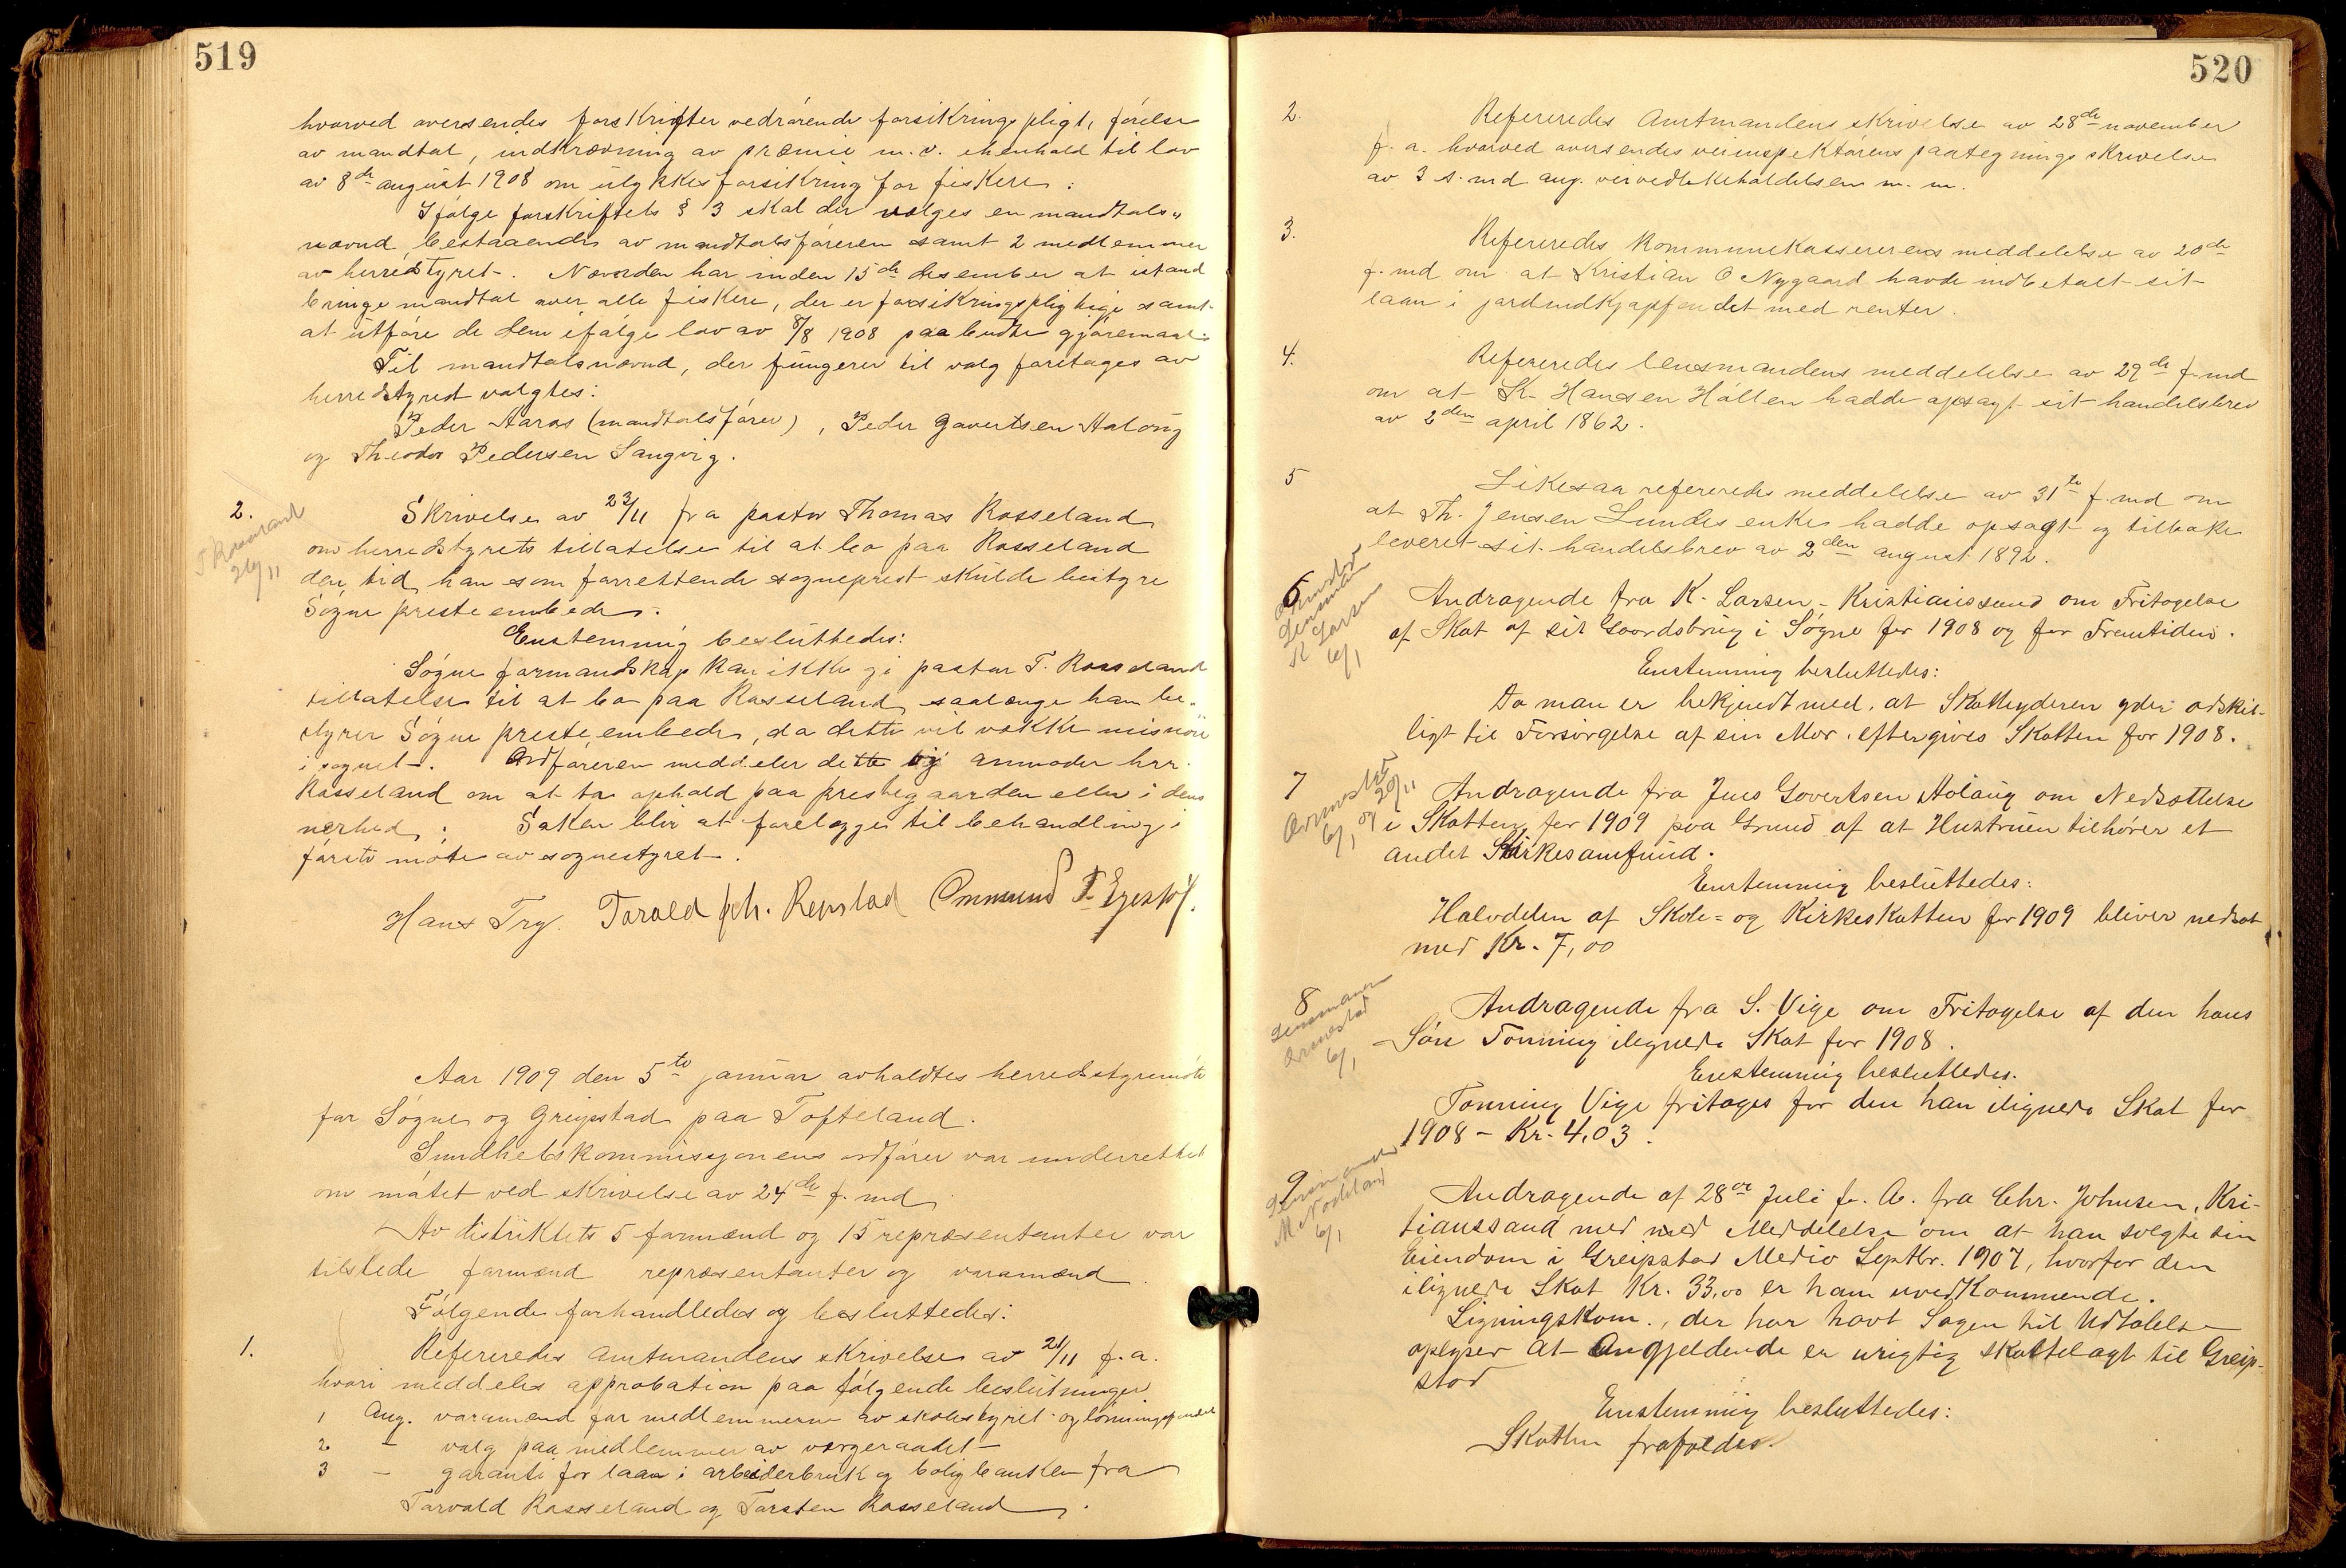 519
hvorved oversendes forskrifter vedrørende forsikringspligt, førelse
av mandtal, indkrævning av præmie m.v. ihenhold til lov
av 8de august 1908 om ulykkesforsikring for fiskere:
Ifølge forskriftets § 3 skal der vælges en mandtals„
nævnd bestaaende av mandtalsføreren samt 2 medlemmer
av herredstyret. Nævnden har inden 15de desember at istand
bringe mandtal over alle fiskere, der er forsikringspligtige samt
at utføre de dem ifølge lov av 8/8 1908 paabudte gjøremaal:
Til mandtalsnævnd, der fungerer til valg foretages av
herredstyret valgtes:
Peder Aaros (mandtalsfører), Peder Govertsen Aaløug
og Theodor Pedersen Langvig.
2.
T. Rosseland
26/11
Skrivelse av 23/11 fra pastor Thomas Rosseland
om herredstyrets tillatelse til at bo paa Rosseland
den tid han som forrettende sogneprest skulde bestyre
Søgne presteembede.
Enstemmig besluttedes:
Søgne formandskap kan ikke gi pastor T. Rosseland
tillatelse til at bo paa Rosseland saalænge han be„
styrer Søgne presteembede, da dette vil vække misnøie
i sognet. Ordføreren meddeler dette og anmoder hrr.
Rosseland om at ta ophold paa prestegaarden eller i dens
nærhed: Saken blir at forelægge til behandling i
første møte av sognestyret.
Hans Try. Torald Joh. Repstad Ommund T. Egeskj.
Aar 1909 den 5te januar avholdtes herredstyremøte
for Søgne og Greipstad paa Tofteland.
Sundhetskommisjonens ordfører var underrettet
om møtet ved skrivelse av 24de f. md
Av distriktets 5 formænd og 15 repræsentanter var
tilstede formænd repræsentanter og varamænd.
Følgende forhandledes og besluttedes:
1.
Refereredes amtmandens skrivelse av 21/11 f.a.
hvori meddeles approbation paa følgende beslutninger
1 Ang. varamænd for medlemmerne av skolestyret og lønningsfondet
2 - valg paa medlemmer av vergeraadet
3 - garanti for laan i arbeiderbruk og boligbanken fra
Torvald Rosseland og Torsten Rosseland.
520
2.
Refereredes Amtmandens skrivelse av 28de november
f.a. hvorved oversendes veiinspektørens paategningsskrivelse
av 3 s. md ang. veivedlikeholdelsen m.m.
3.
Refereredes kommunekassererens meddelelse av 20de
f. md om at Kristian O Nygaard havde indbetalt sit
laan i jordindkjøpfondet med renter.
4.
Refereredes lensmandens meddelelse av 29de f. md
om at K. Hansen Høllen hadde opsagt sit handelsbrev
av 2den april 1862.
5
Likesaa refereredes meddelelse av 31te f. md om
at Th. Jensen Lundes enke hadde opsagt og tilbake
leveret sit handelsbrev av 2den august 1892.
6
Lensman
K Larsen
6/1
Andragende fra K. Larsen - Kristianssand om Fritagelse
af Skat af sit Gaardsbrug i Søgne for 1908 og for Fremtiden.
Enstemmig besluttedes:
Da man er bekjendt med, at Skatteyderen yder adskil-
ligt til Forsørgelse af sin Mor, eftergives Skatten for 1908.
7
Ormestad
6/1 og 20/11
Andragende fra Jens Govertsen Aaløug om Nedsættelse
i Skatten for 1909 paa Grund af at Hustruen tilhører et
andet Kirkesamfund.
Enstemmig besluttedes:
Halvdelen af Skole= og Kirkeskatten for 1909 bliver nedsat
med Kr. 7,00
8
Lensmanden
Ormestad
6/1
Andragende fra S. Vige om Fritagelse af den hans
Søn Tønning ilignede Skat for 1908.
Enstemmig besluttedes.
Tønning Vige fritages for den han ilignede Skat for
1908 - Kr. 4.03.
9
Lensmanden
6/1
Andragende af 28de Juli f. A. fra Chr. Johnsen, Kri-
tianssand med med Meddelelse om at han solgte sin
Eiendom i Greipstad Medio Septbr. 1907, hvorfor den
ilignede Skat Kr. 33,00 er ham uvedkommende.
Ligningskom., der har havt Sagen til Udtalelse
oplyser at Angjeldende er urigtig skattelagt til Greip-
stad
Enstemmig besluttedes:
Skatten frafaldes.